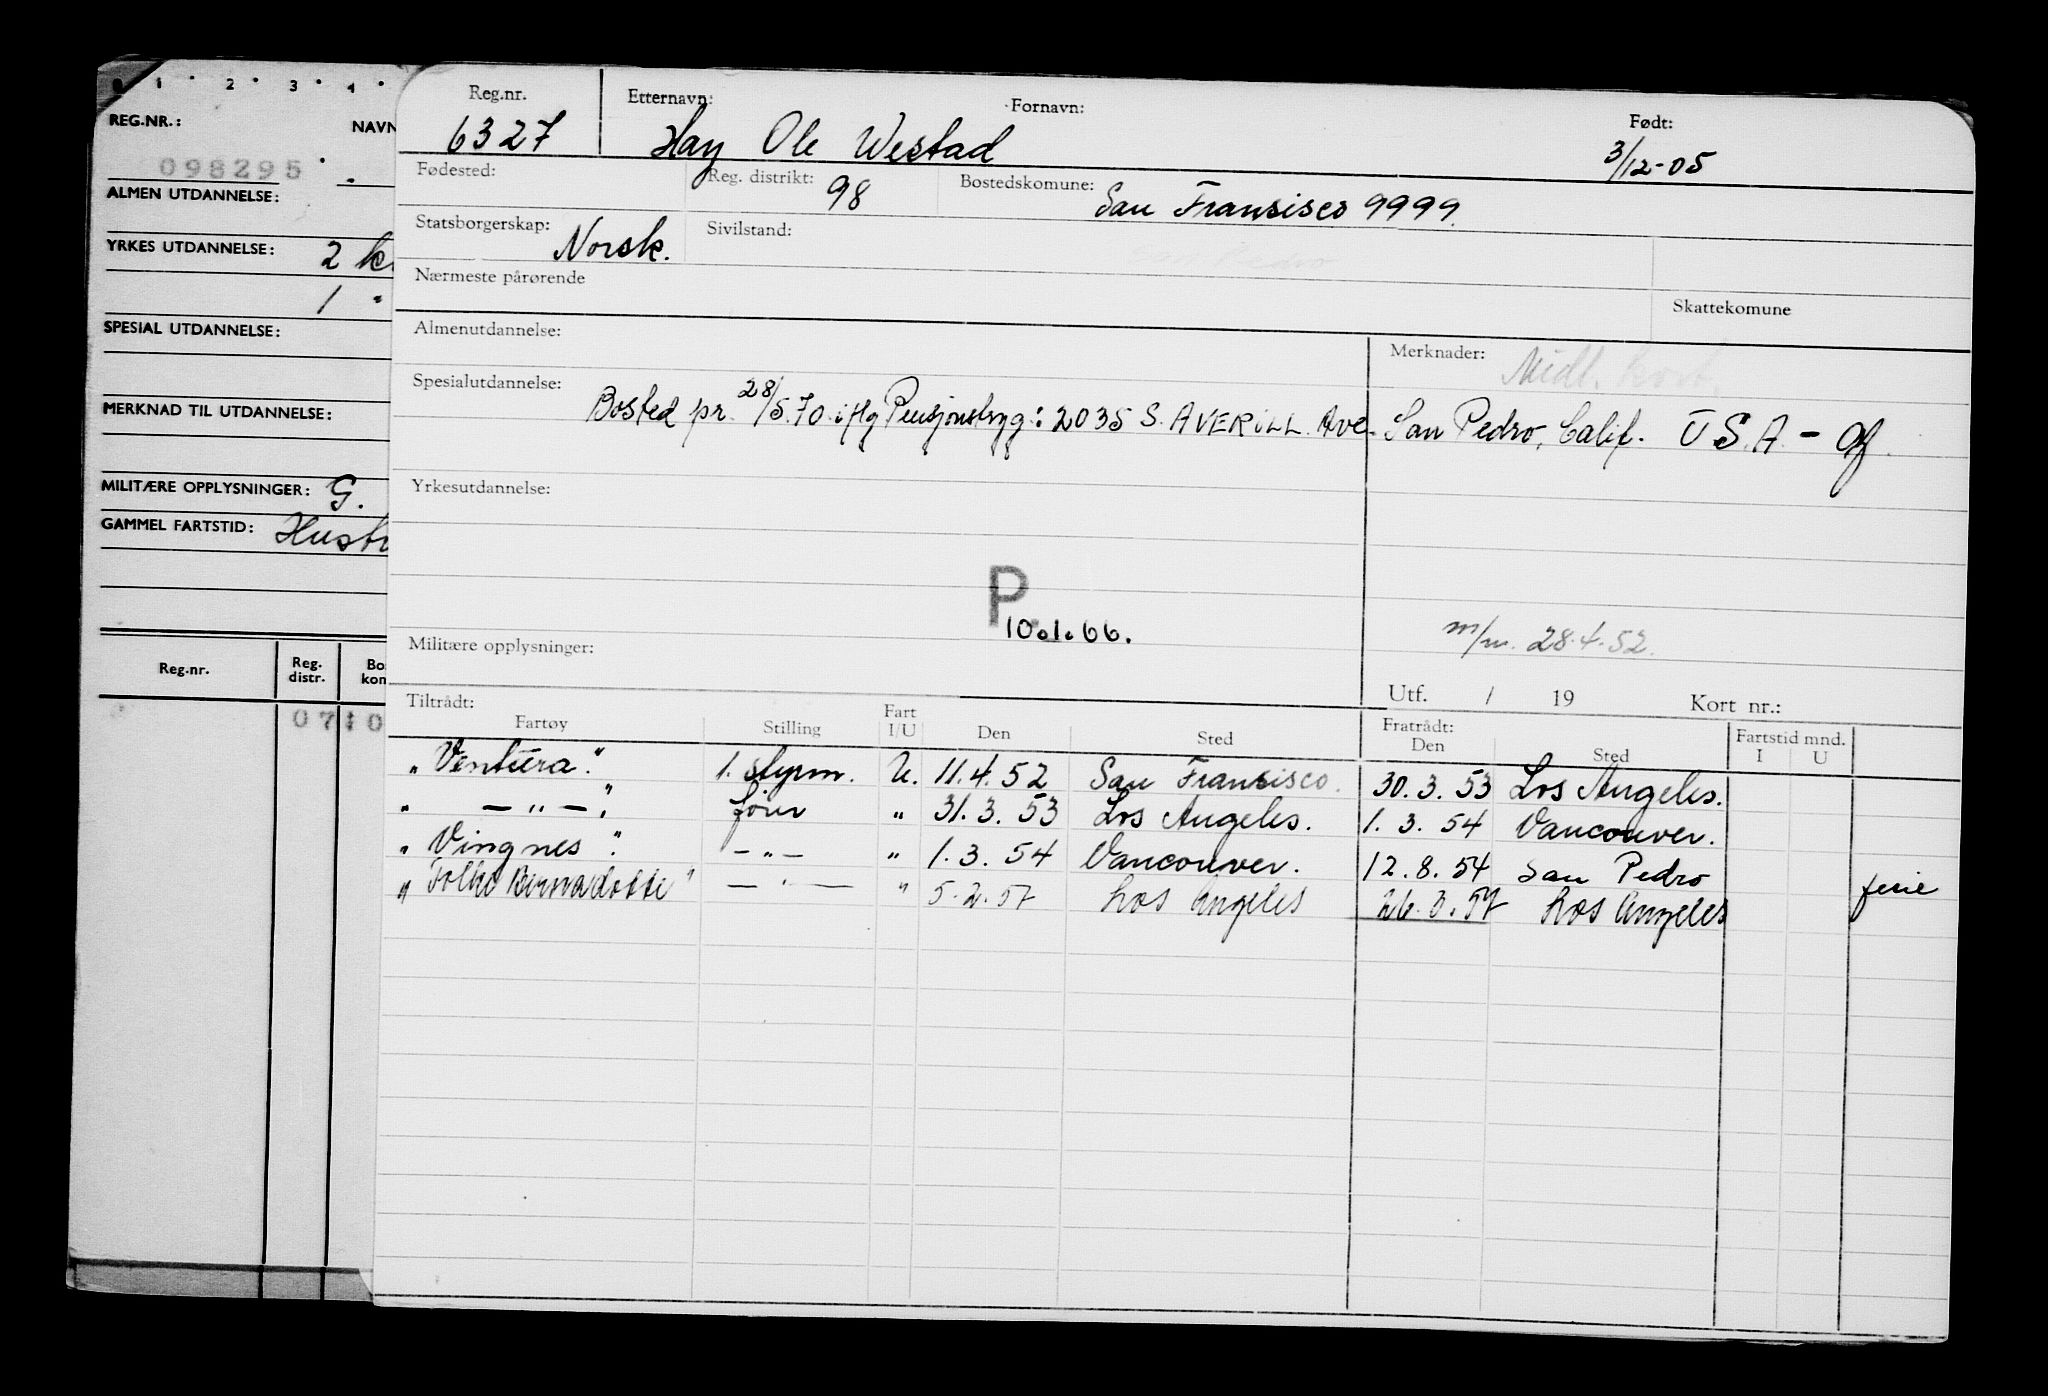 1 2 3 4
REG.NR.:
NAVN
098295
ALMEN UTDANNELSE:
YRKES UTDANNELSE: 2 k
1 "
SPESIAL UTDANNELSE:
MERKNAD TIL UTDANNELSE:
MILITÆRE OPPLYSNINGER: G.
GAMMEL FARTSTID: Hust
Reg.nr. Reg. distr. Bo kon
Reg.nr. Etternavn: Fornavn: Født:
6327 Hay Ole Westad 3/12-05
Fødested: Reg. distrikt: 98 Bostedskomune: San Fransisco 9999.
Statsborgerskap: Norsk. Sivilstand:
San Pedro
Nærmeste pårørende Skattekomune
Almenutdannelse: Merknader: Midl. kort.
Spesialutdannelse: Bosted pr. 28/5.70 iflg Pensjonstryg.: 2035 S. AVERILL. Ave. San Pedro, Calif. U.S.A. -
Yrkesutdannelse:
P.
10.1.66.
m/m. 28.4.52.
Militære opplysninger:
Utf. / 19 Kort nr.:
Tiltrådt: Fratrådt: Fartstid mnd.
Fartøy Stilling Fart I/U Den Sted Den Sted I U
"Ventura". 1. styrm. U. 11.4.52 San Fransisco. 30.3.53 Los Angeles.
" — " — ". fører " 31.3.53 Los Angeles. 1.3.54 Vancouver.
"Vingnes". — " — " 1.3.54 Vancouver. 12.8.54 San Pedro ferie
"Folke Bernadotte" — " — " 5.2.57 Los Angeles 26.3.57 Los Angeles